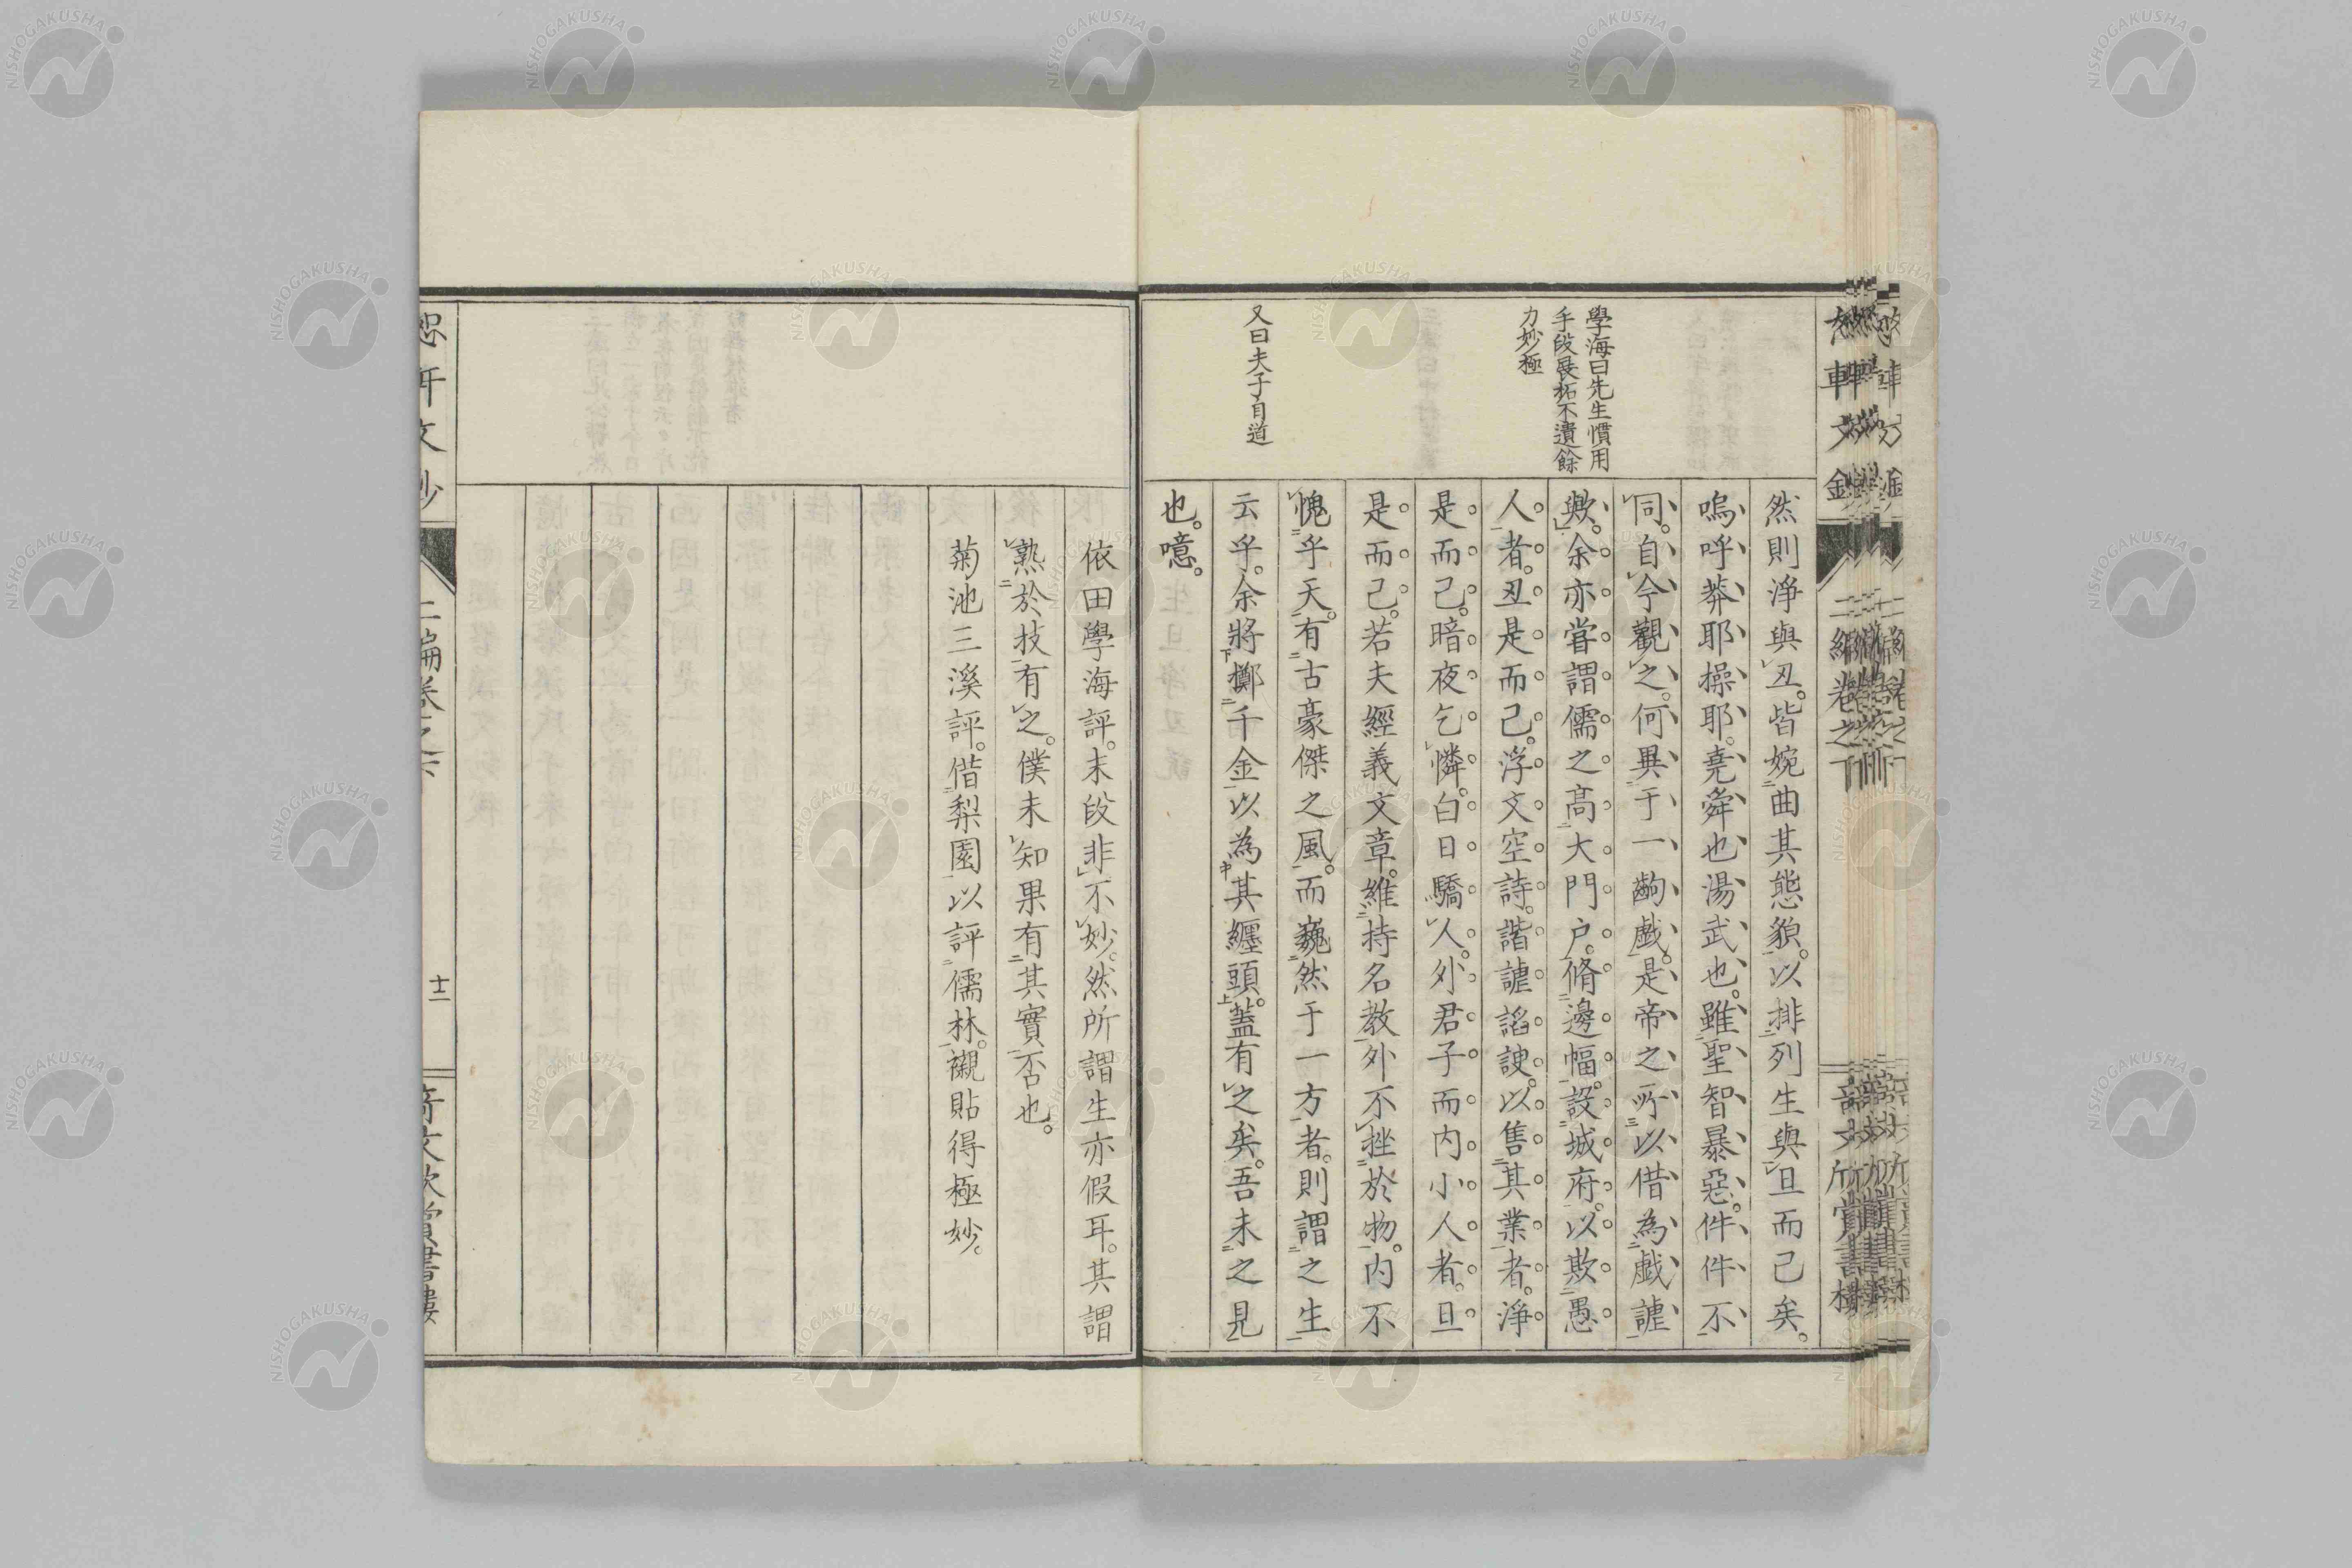 學海曰先生慣用
手段展拓不遺餘
力妙極
又曰夫子自道
然則淨與丑。皆婉曲其態貌。以排列生與旦而已矣。
嗚呼莽耶操耶。堯舜也湯武也。雖聖智暴惡。件件不
同。自今觀之。何異于一齣戲。是帝之所以借為戲謔
歟。余亦嘗謂儒之高大門户。脩邊幅。設城府。以欺愚
人者。丑是而已。浮文空詩。諧謔諂諛。以售其業者。淨
是而已。暗夜乞憐。白日驕人。外君子而内小人者。旦
是而已。若夫經義文章。維持名教。外不挫於物。内不
愧乎天。有古豪傑之風。而巍然于一方者。則謂之生
云乎。余將擲千金以為其纏頭。蓋有之矣。吾未之見
也。噫。
依田學海評。末段非不妙。然所謂生亦假耳。其謂
熟於技有之。僕未知果有其實否也。
菊池三溪評。借梨園以評儒林。襯貼得極妙。
恕軒文鈔
二編卷之下
十二
奇文欣賞書樓